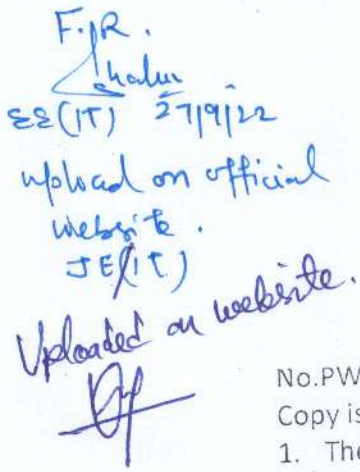 F.R.
EE(IT) 27/9/22
upload on official
website.
JE(IT)
Uploaded on website.
No.PW
Copy is
1. The